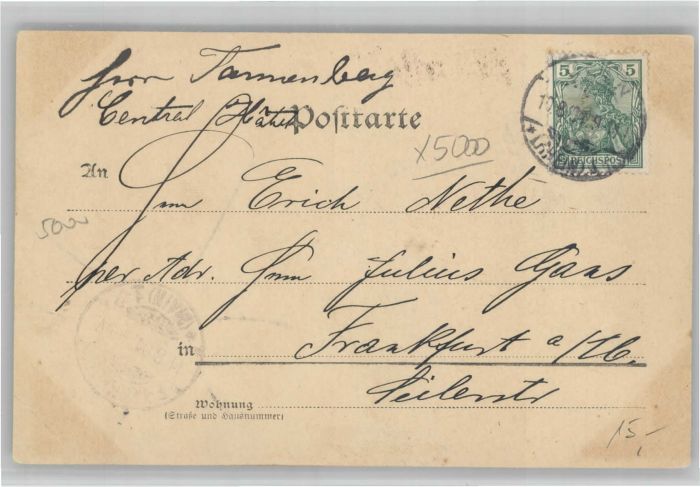 Herrn Tannenberg
Central Hôtel
Postkarte
5 5
REICHSPOST
X5000
An
Herrn Erich Nethe
5000
per Adr. Herrn Julius Gans
in Frankfurt a/M.
Seilerstr
Wohnung
(Straße und Hausnummer)
15,-